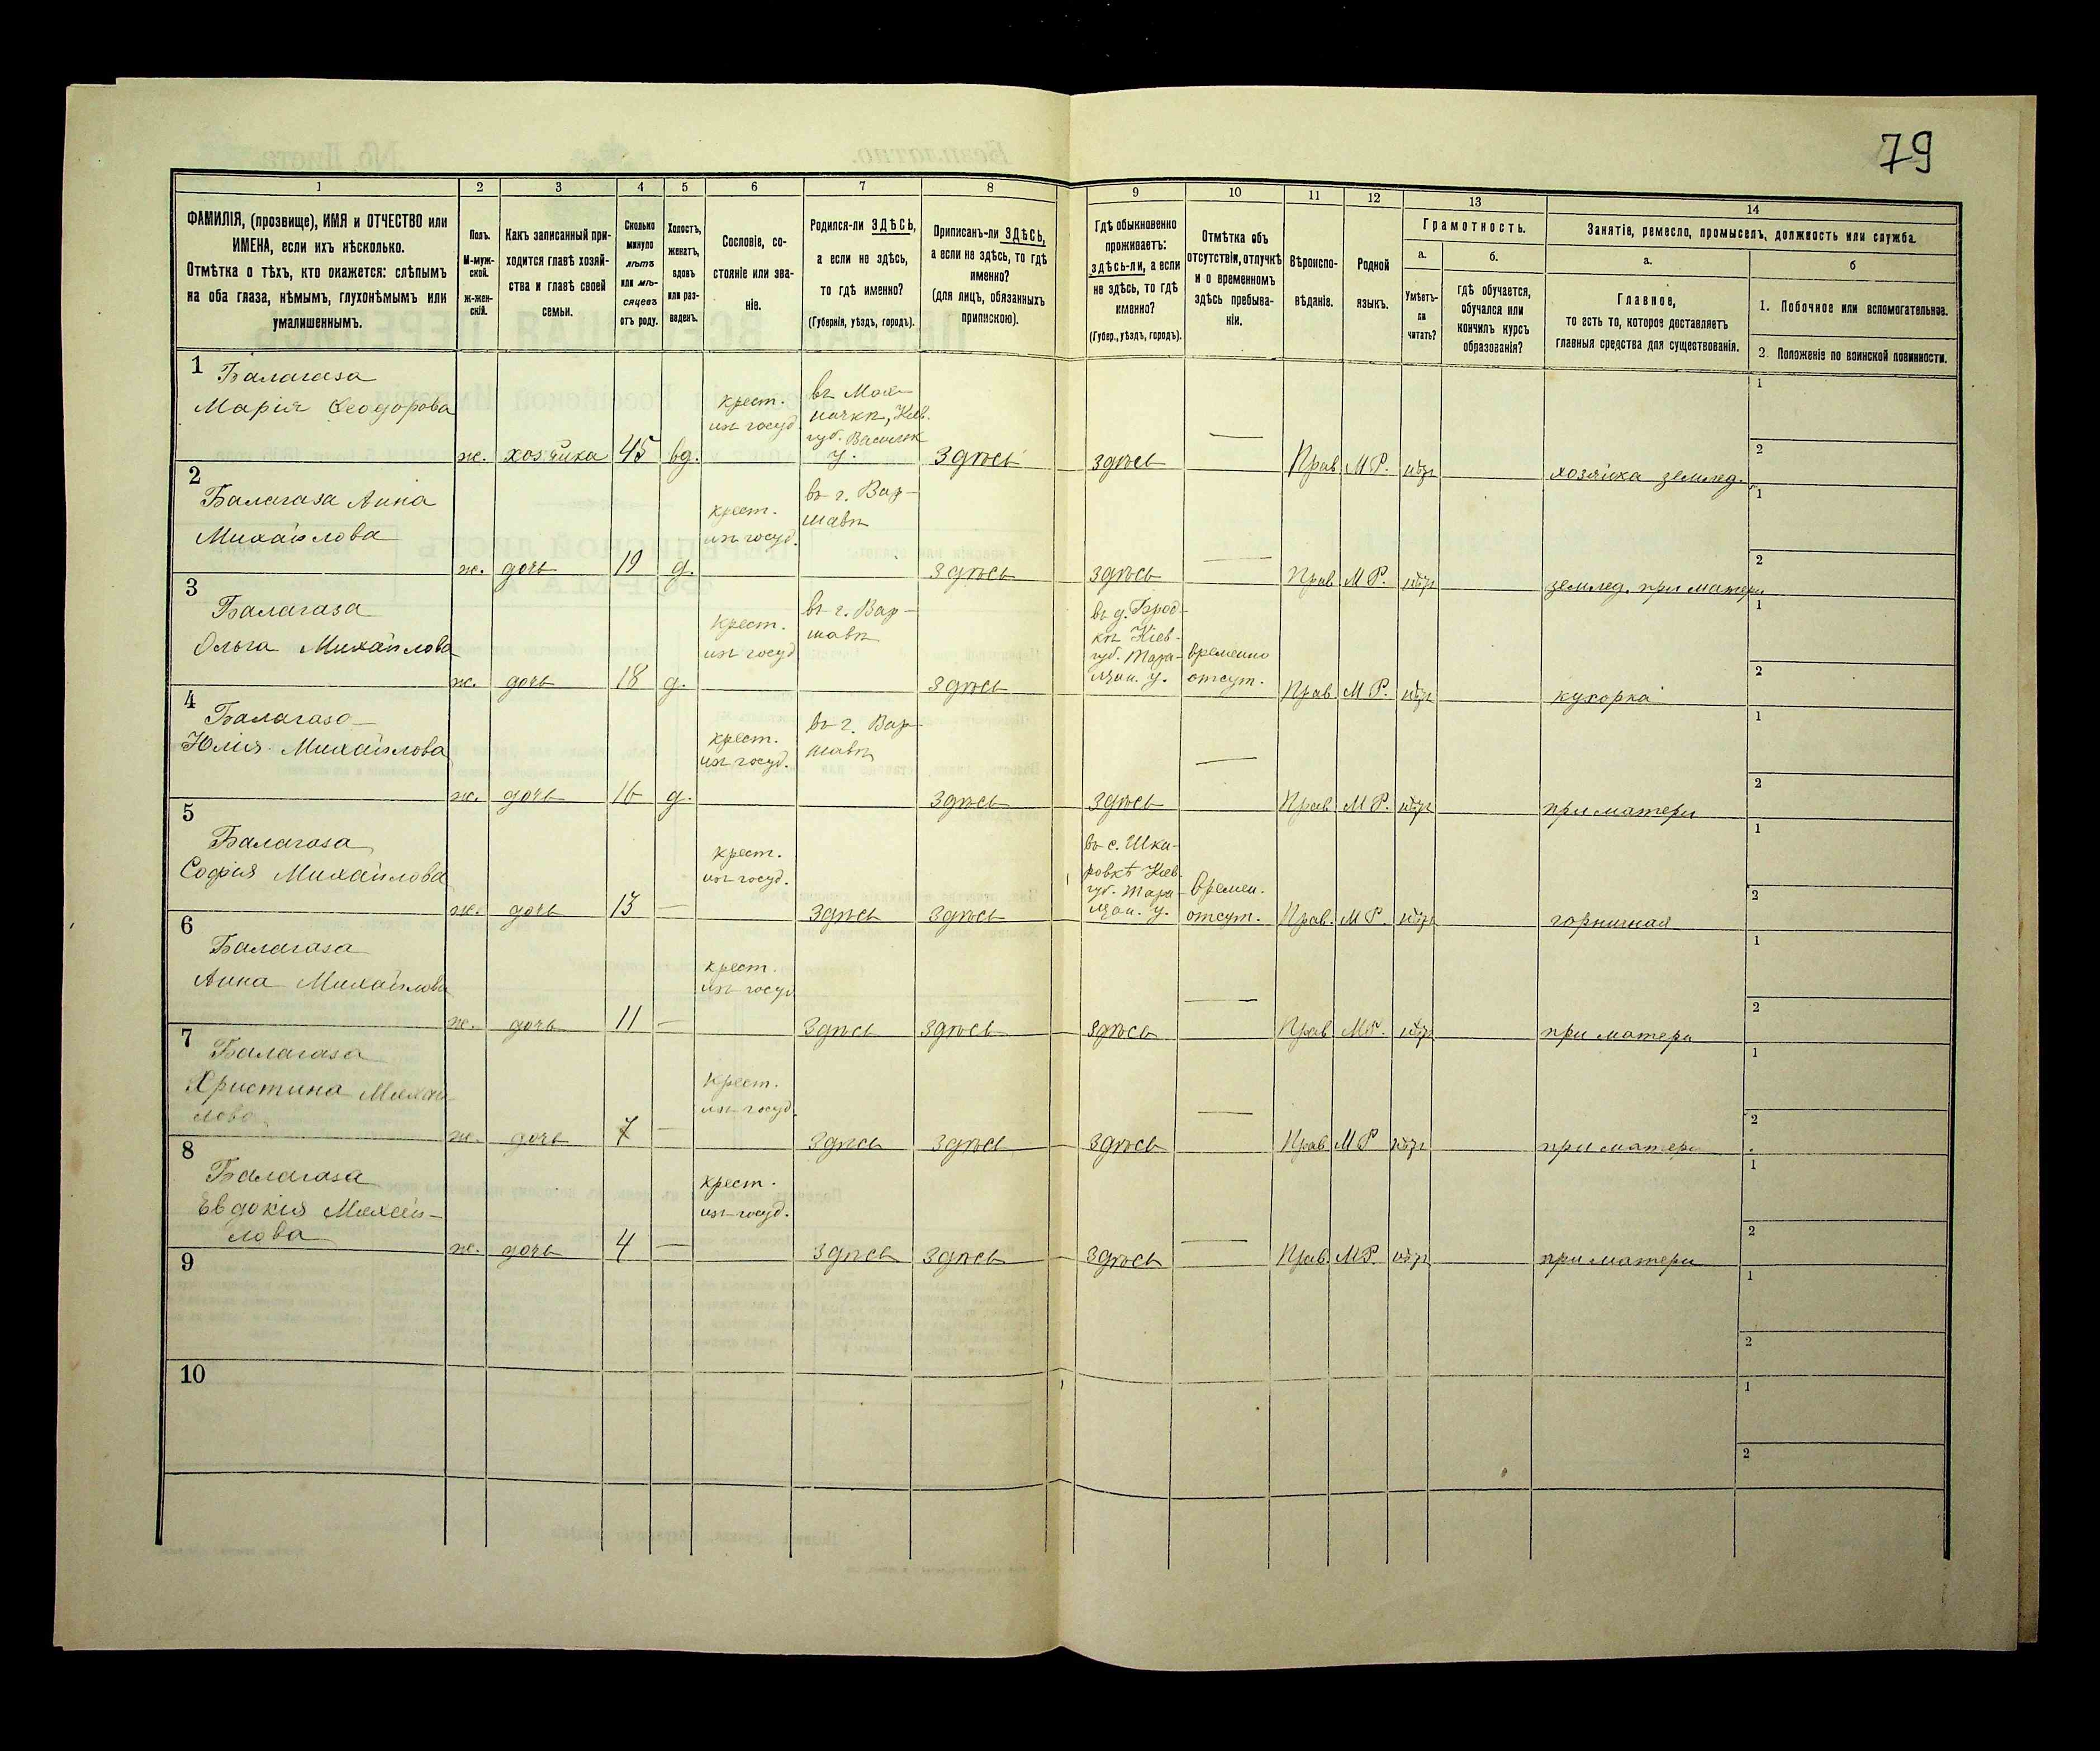 79
1 2 3 4 5 6 7 8 9 10 11 12 13 14
ФАМИЛІЯ, (прозвище), ИМЯ и ОТЧЕСТВО или
ИМЕНА, если ихъ нѣсколько.
Отмѣтка о тѣхъ, кто окажется: слѣпымъ
на оба глаза, нѣмымъ, глухонѣмымъ или
умалишеннымъ.
Полъ.
М-муж-
ской.
Ж-жен-
скій.
Какъ записанный при-
ходится главѣ хозяй-
ства и главѣ своей
семьи.
Сколько
минуло
лѣтъ
или мѣ-
сяцевъ
отъ роду.
Холостъ,
женатъ,
вдовъ
или раз-
веденъ.
Сословіе, со-
стояніе или зва-
ніе.
Родился-ли ЗДѢСЬ,
а если не здѣсь,
то гдѣ именно?
(Губернія, уѣздъ, городъ).
Приписанъ-ли ЗДѢСЬ,
а если не здѣсь, то гдѣ
именно?
(для лицъ, обязанныхъ
припискою).
Гдѣ обыкновенно
проживаетъ:
здѣсь-ли, а если
не здѣсь, то гдѣ
именно?
(Губер., уѣздъ, городъ).
Отмѣтка объ
отсутствіи, отлучкѣ
и о временномъ
здѣсь пребыва-
ніи.
Вѣроиспо-
вѣданіе.
Родной
языкъ.
Грамотность.
а.
Умѣетъ-
ли
читать?
б.
гдѣ обучается,
обучался или
кончилъ курсъ
образованія?
Занятіе, ремесло, промыселъ, должность или служба.
а.
Главное,
то есть то, которое доставляетъ
главныя средства для существованія.
б
1. Побочное или вспомогательное.
2. Положеніе по воинской повинности.
1 Балагаза
Марія Ѳеодорова
ж. хозяйка 45 вд.
крест.
изъ госуд.
въ
Кіев.
губ. Васильк
у.
здѣсь здѣсь — Прав М Р. нѣтъ хозяйка землед.
1
2
2
Балагаза Анна
Михайлова
ж. дочь 19 д.
крест.
изъ госуд.
въ г. Вар-
шавѣ
здѣсь здѣсь — Прав М Р. нѣтъ землед. при матери
1
2
3
Балагаза
Ольга Михайлова
ж. дочь 18 д.
крест.
изъ госуд
въ г. Вар-
шавѣ
здѣсь
въ д. Брод-
кѣ Кіев.
губ. Тара-
щан. у.
временно
отсут.
Прав М Р. нѣтъ кухорка
1
2
4
Балагаза
Юлія Михайлова
ж. дочь 16 д.
крест.
изъ госуд.
въ г. Вар-
шавѣ
здѣсь здѣсь — Прав М Р. нѣтъ при матери
1
2
5
Балагаза
Софія Михайлова
ж. дочь 13 —
крест.
изъ госуд.
здѣсь здѣсь
въ с. Шка-
ровкѣ Кіев
губ. Тара-
щан. у.
времен.
отсут.
Прав. М Р. нѣтъ горничная
1
2
6
Балагаза
Анна Михайлова
ж. дочь 11 —
крест.
изъ госуд
здѣсь здѣсь здѣсь — Прав М Р. нѣтъ при матери
1
2
7
Балагаза
Христина Михай-
лова
ж. дочь 7 —
крест.
изъ госуд.
здѣсь здѣсь здѣсь — Прав М Р нѣтъ при матери
1
2
8
Балагаза
Евдокія Михай-
лова
ж. дочь 4 —
крест.
изъ госуд.
здѣсь здѣсь здѣсь — Прав. М Р. нѣтъ при матери
1
2
9
1
2
10
1
2